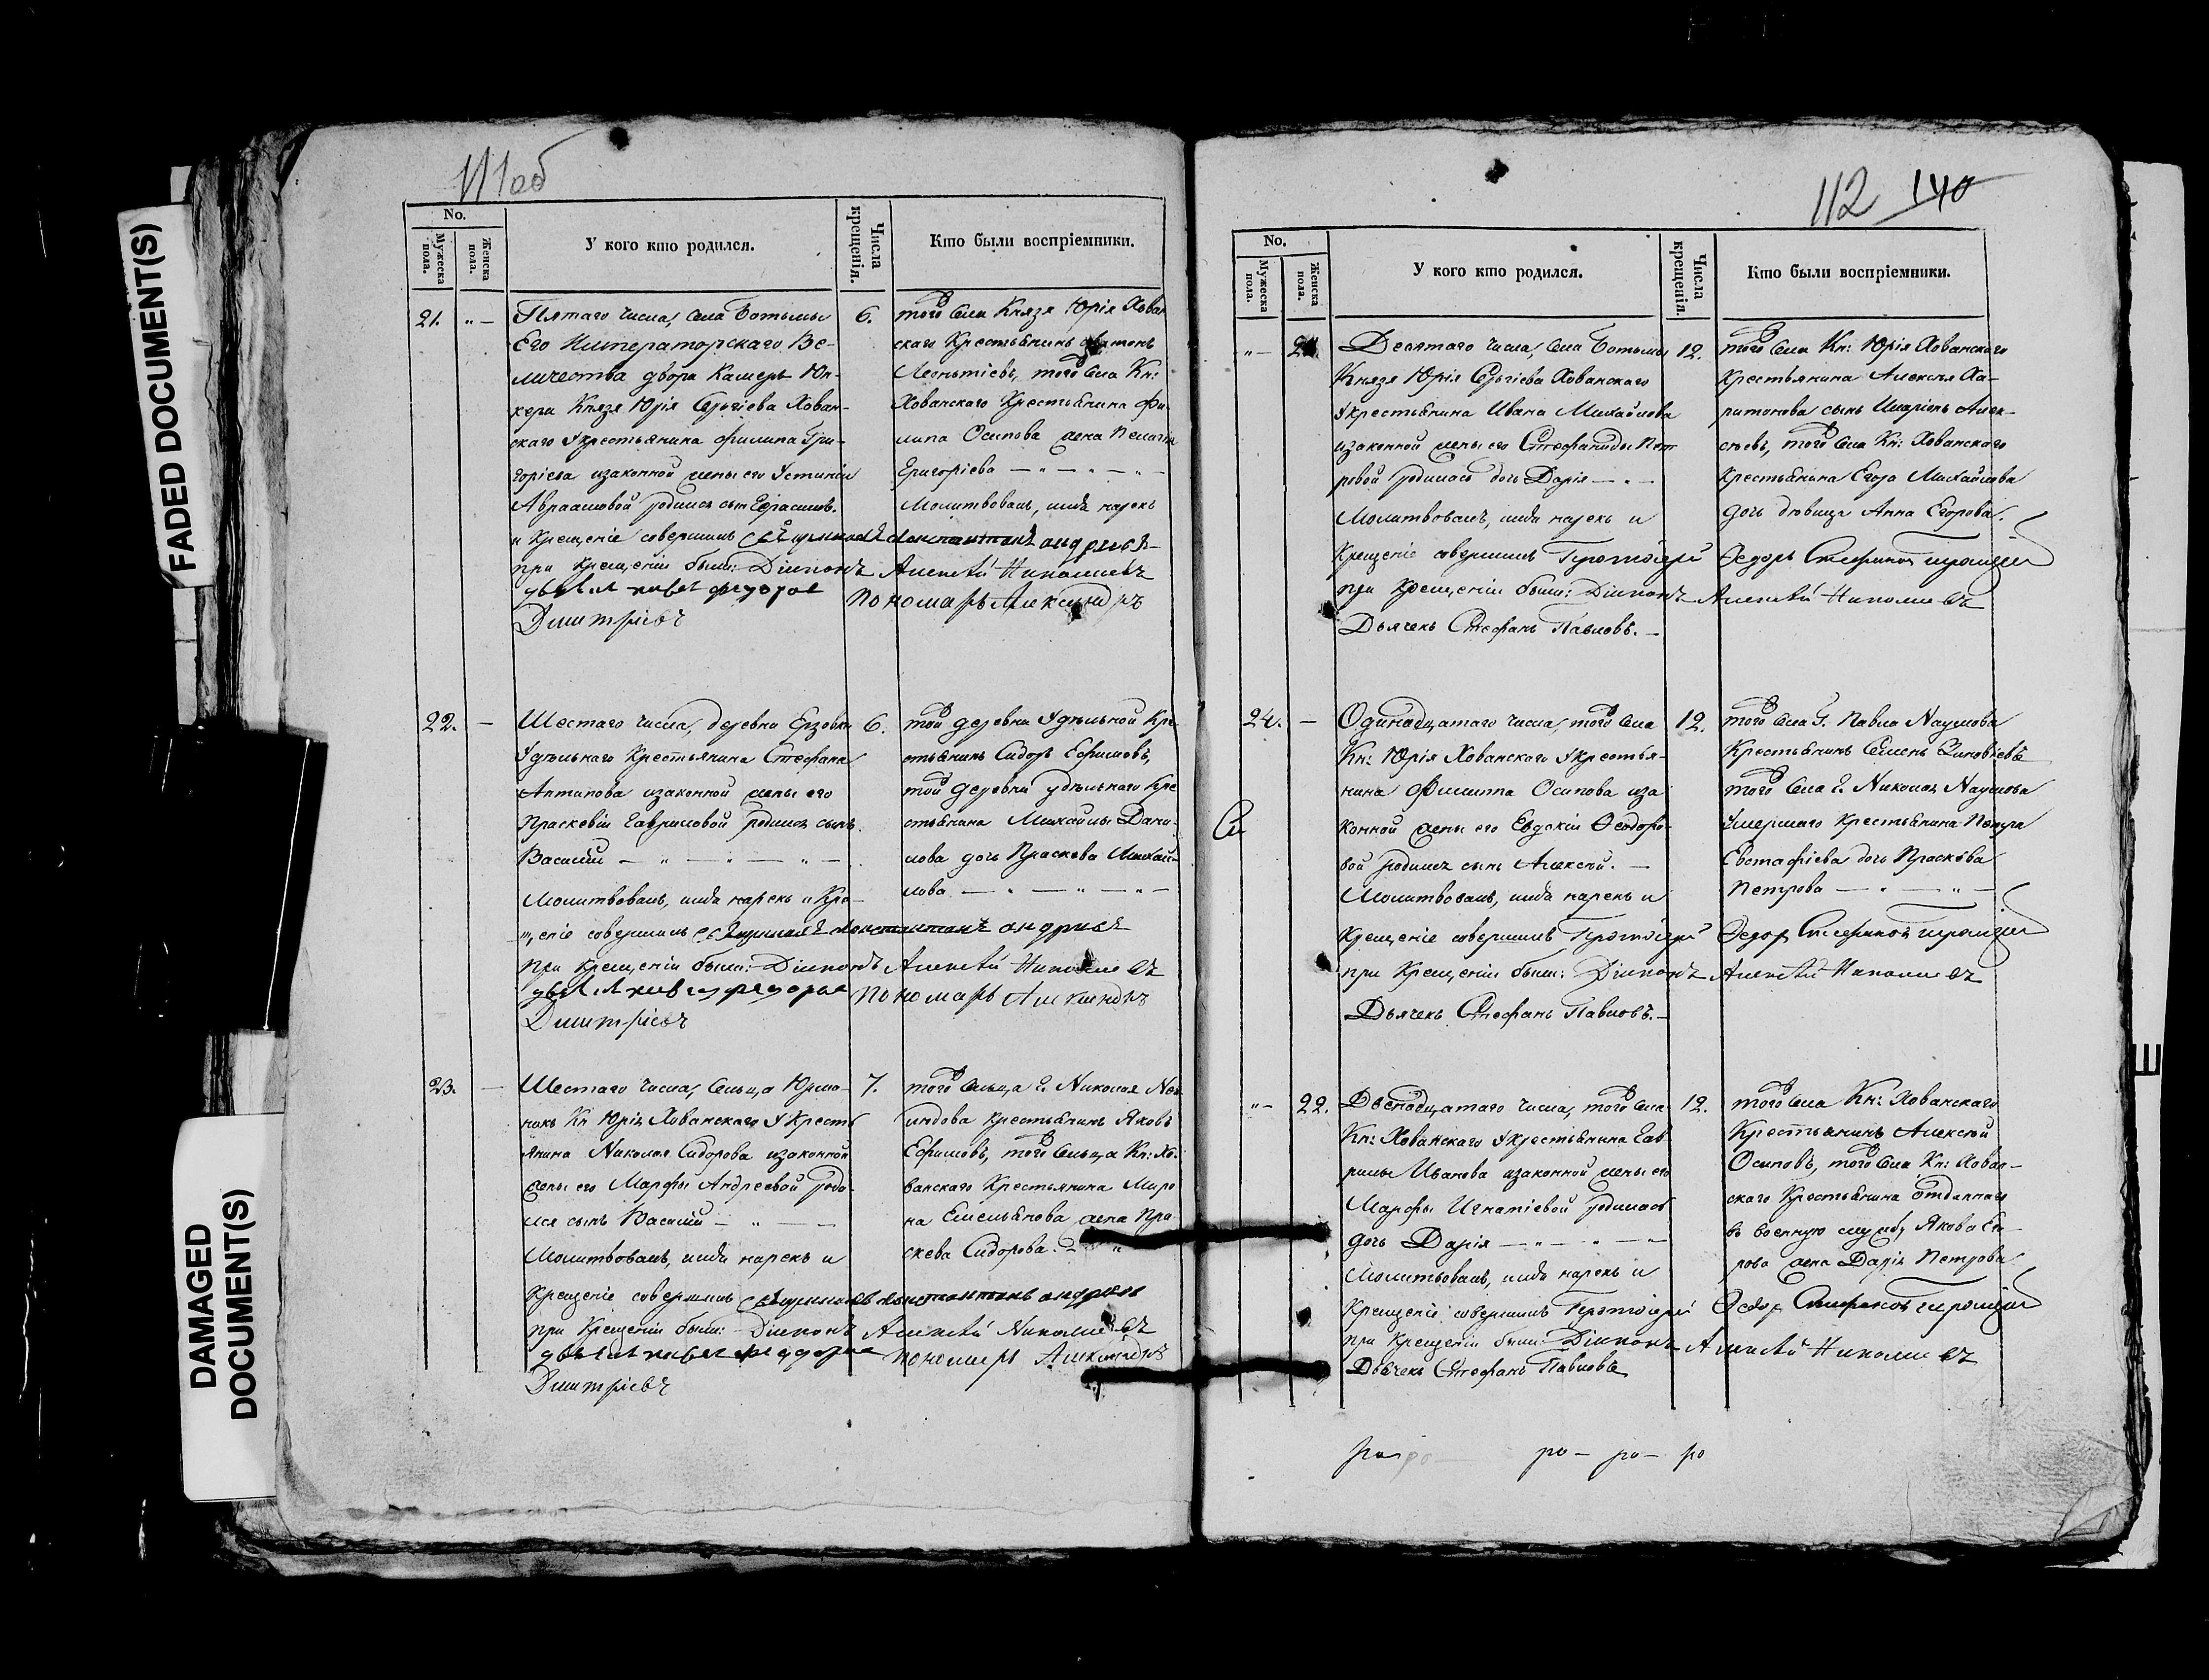 FADED DOCUMENT(S)
DAMAGED
DOCUMENT(S)
111об
No.
Мужеска
пола.
Женска
пола.
У кого кто родился.
Числа
крещенія.
Кто были воспріемники.
21.
Пятаго числа, села Ботьмы
Его Императорскаго Ве-
личества двора Камеръ Юн-
кера Князя Юрія Сергіева Хован-
скаго У крестьянина Филипа Гри-
горіева изаконной жены его Устиніи
Авраамовой родился сынъ Герасимъ.
и Крещеніе совершилъ Священникъ Константинъ Андреевъ
при Крещеніи были: Діаконъ Алексѣй Николаевъ
Ѳедоровъ Пономарь Александръ
Димитріевъ
6.
того села Князя Юрія Хован
скаго Крестьянинъ
Леонтіевъ, того села Кн:
Хованскаго Крестьянина Фи-
липа Осипова жена Пелагія
Григоріева
Молитвовалъ, имя нарекъ
22.
Шестаго числа, деревни Ерзовки
Удѣльнаго Крестьянина Стефана
Антипова изаконной жены его
Праскевіи Гавриловой родился сынъ
Василій
Молитвовалъ, имя нарекъ и Кре-
щеніе совершилъ Священникъ Константинъ Андреевъ
При Крещеніи были: Діаконъ Алексѣй Николаевъ
Ѳедоровъ Пономарь Александръ
Димитріевъ
6.
той деревни Удѣльной Кре-
стьянинъ Сидоръ Ефимовъ,
той деревни удѣльнаго Кре
стьянина Михайлы Дани-
лова дочь Праскева Михай-
лова
23.
Шестаго числа, Сельца Юрма-
Кн Юрія Хованскаго У Кресть
янина Николая Сидорова изаконной
жены его Марфы Андреевой роди-
лся сынъ Василій
Молитвовалъ, имя нарекъ и
Крещеніе совершилъ Священникъ Константинъ Андреевъ
при Крещеніи были: Діаконъ Алексѣй Николаевъ
Ѳедоровъ Пономарь Александръ
Димитріевъ
7.
того Сельца г. Николая
Крестьянинъ Яковъ
Ефимовъ, того Сельца Кн: Хо-
ванскаго Крестьянина Миро
на Емельянова жена Пра
скева Сидорова.
112 140
No.
Мужеска
пола.
Женска
пола.
У кого кто родился.
Числа
крещенія.
Кто были воспріемники.
21.
Десятаго числа, села Ботьмы
Князя Юрія Сергіева Хованскаго
У крестьянина Ивана Михайлова
изаконной жены его Стефаниды Пет
ровой родилась дочь Дарія
Молитвовалъ, имя нарекъ и
Крещеніе совершилъ Протоіерей Ѳедоръ
при Крещеніи были: Діаконъ Алексѣй Николаевъ
Дьячекъ Стефанъ Павловъ.
12.
того села Кн: Юрія Хованскаго
Крестьянина Алексѣя Ха-
ритонова сынъ Иларіонъ Алек-
сѣевъ, того села Кн: Хованскаго
Крестьянина Егора Михайлова
дочь дѣвица Анна Егорова.
24.
Одинадцатаго числа, того села
Кн: Юрія Хованскаго У крестья-
нина Филипа Осипова иза
конной жены его Евдокіи Ѳеодоро-
вой родился сынъ Алексѣй.
Молитвовалъ, имя нарекъ и
Крещеніе совершилъ Протоіерей Ѳедоръ
при Крещеніи были: Діаконъ Алексѣй Николаевъ
Дьячекъ Стефанъ Павловъ.
12.
того села Г. Павла Наумова
Крестьянинъ Семенъ Зиновіевъ
того села г. Николая Наумова
Умершаго Крестьянина Петра
Евстафіева дочь Праскева
Петрова
22.
Двенадцатаго числа, того села
Кн: Хованскаго У крестьянина Гав
рилы Иванова изаконной жены его
Марфы Игнатіевой родилась
дочь Дарія
Молитвовалъ, имя нарекъ и
Крещеніе совершилъ Протоіерей Ѳедоръ
при Крещеніи были: Діаконъ Алексѣй Николаевъ
Дьячекъ Стефанъ Павловъ
12.
того села Кн: Хованскаго
Крестьянинъ Алексѣй
Осиповъ, того села Кн: Хован-
скаго Крестьянина отданнаго
въ военную службу Якова
жена Дарія Петрова
ро — ро — ро